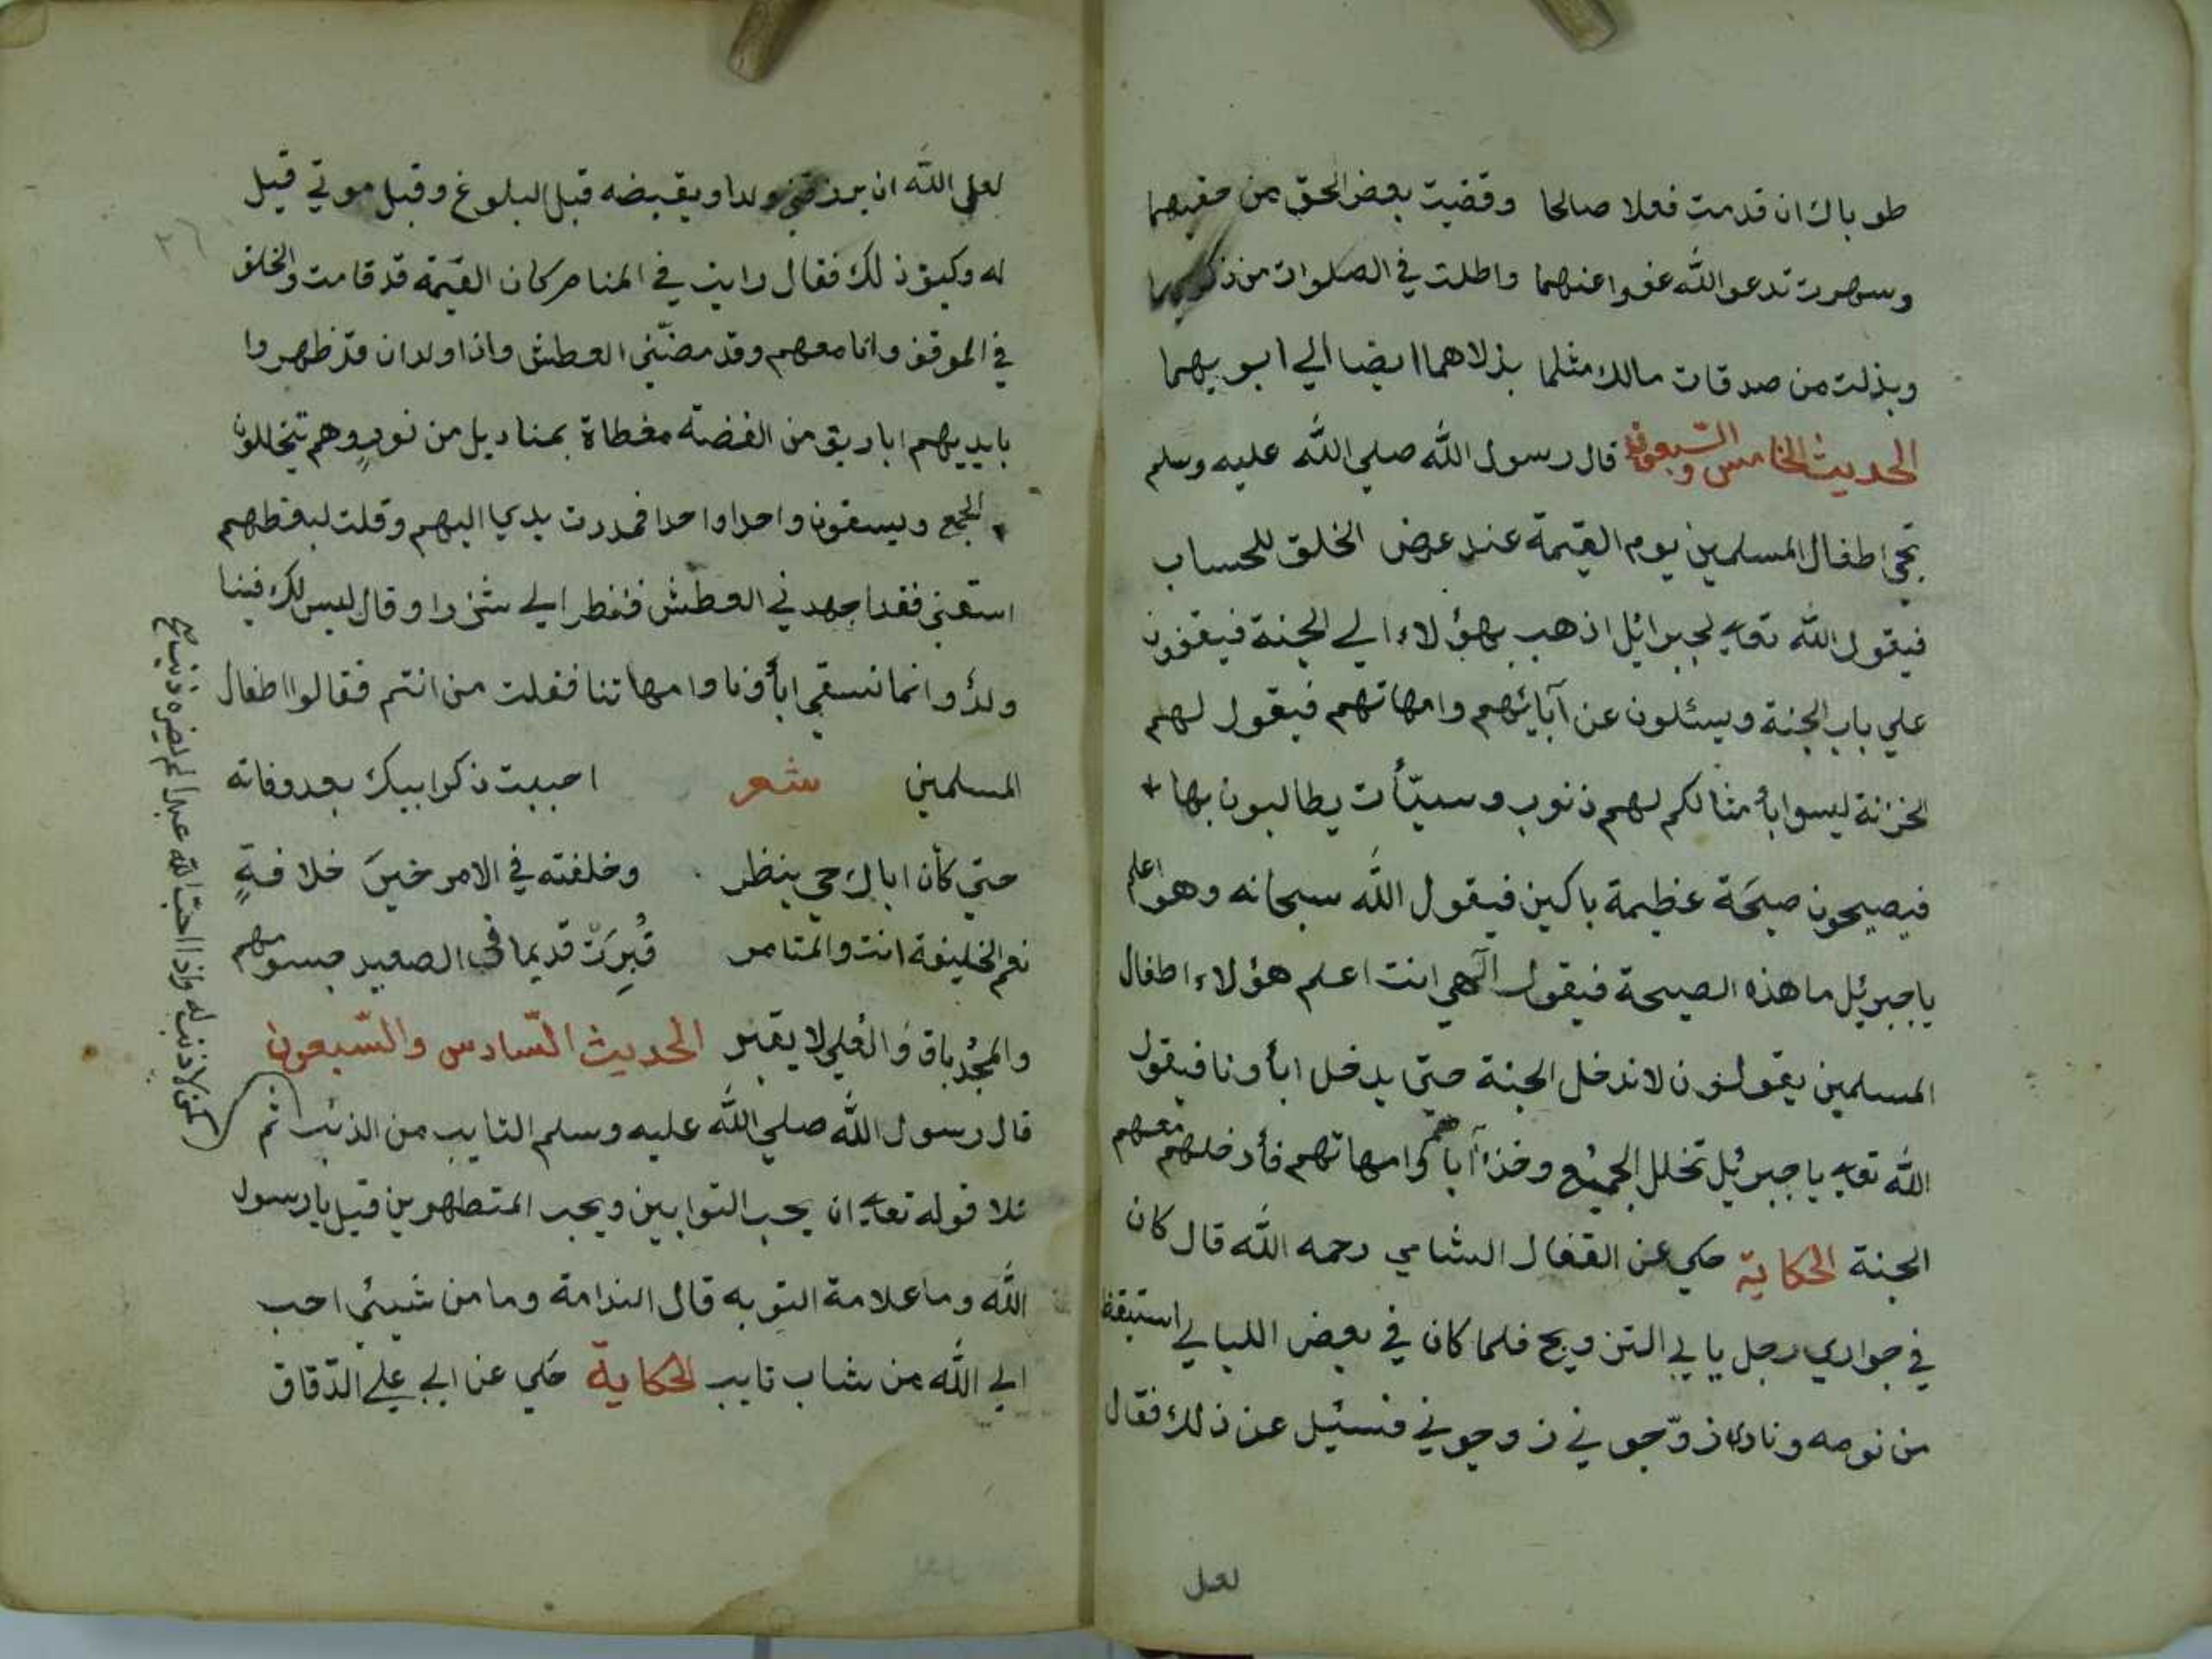 طوباك ان قدمت فعلا صالحا وقضيت بعض الحق من حقيهما
وسهرت تدعو الله عفوا عنهما واطلت في الصلوات من
وبذلت من صدقات مالك مثلما بذلاهما ايضا الي ابويهما
الحديث الخامس والسبعون قال رسول الله صلي الله عليه وسلم
تجئ اطفال المسلمين يوم القيمة عند عرض الخلق للحساب
فيقول الله تعالي لجبرائل اذهب بهؤلاء الي الجنة فيقفون
علي باب الجنة ويسئلون عن آبائهم وامهاتهم فيقول لهم
الخزنة ليسوا بأمثالكم لهم ذنوب وسيّأت يطالبون بها
فيصيحون صيحَة عظيمة باكين فيقول الله سبحانه وهو اعلم
يا جبرئل ما هذه الصيحة فيقول الهي انت اعلم هؤلاء اطفال
المسلمين يقولون لا ندخل الجنة حتي يدخل ابأونا فيقول
الله تعالي يا جبرئل تخلل الجميع وخذ آباهم وامهاتهم فأدخلهم معهم
الجنة الحكاية حكي عن القفال الشامي رحمه الله قال كان
في جواري رجل يابي التزويج فلما كان في بعض الليالي استيقظ
من نومه ونادي زوّجوني زوجوني فسئيل عن ذلك فقال
لعل
لعل الله ان يرزقني ولدا ويقبضه قبل البلوغ وقبل موتي قيل
له وكيف ذلك فقال رايت في المنام كان القيمة قد قامت والخلق
في الموقف وانا معهم وقد مضّني العطش واذا ولدان قد ظهروا
بايديهم اباريق من الفضة مغطاة بمناديل من نورٍ وهم يتخللون
الجمع ويسقون واحدا واحدا فمددت يدي اليهم وقلت لبعضهم
اسقني فقد اجهدني العطش فنظر الي شزرا وقال ليس لك فينا
ولدٌ وانما نسقي ابأونا وامهاتنا فقلت من انتم فقالوا اطفال
المسلمين شعر احببت ذكر ابيك بعد وفاته
حتي كأن اباك حي ينظر وخلفته في الامر خيرَ خلافةٍ
نعم الخليفة انت والمتامر قُبِرَتْ قديما في الصعيد جسومهم
والمجدُ باق والعُلي لا يقبر الحديث السّادس والسّبعون
قال رسول الله صلي الله عليه وسلم التايب من الذنب ثم
كمن لا ذنب له واذا احب الله عبدا لم يضره ذنب صح
تلا قوله تعالي ان يحب التوابين ويحب المتطهرين قيل يا رسول
الله وما علامة التوبه قال الندامة وما من شيئ احب
الي الله من شاب تايب الحكاية حكي عن ابي علي الدّقاق